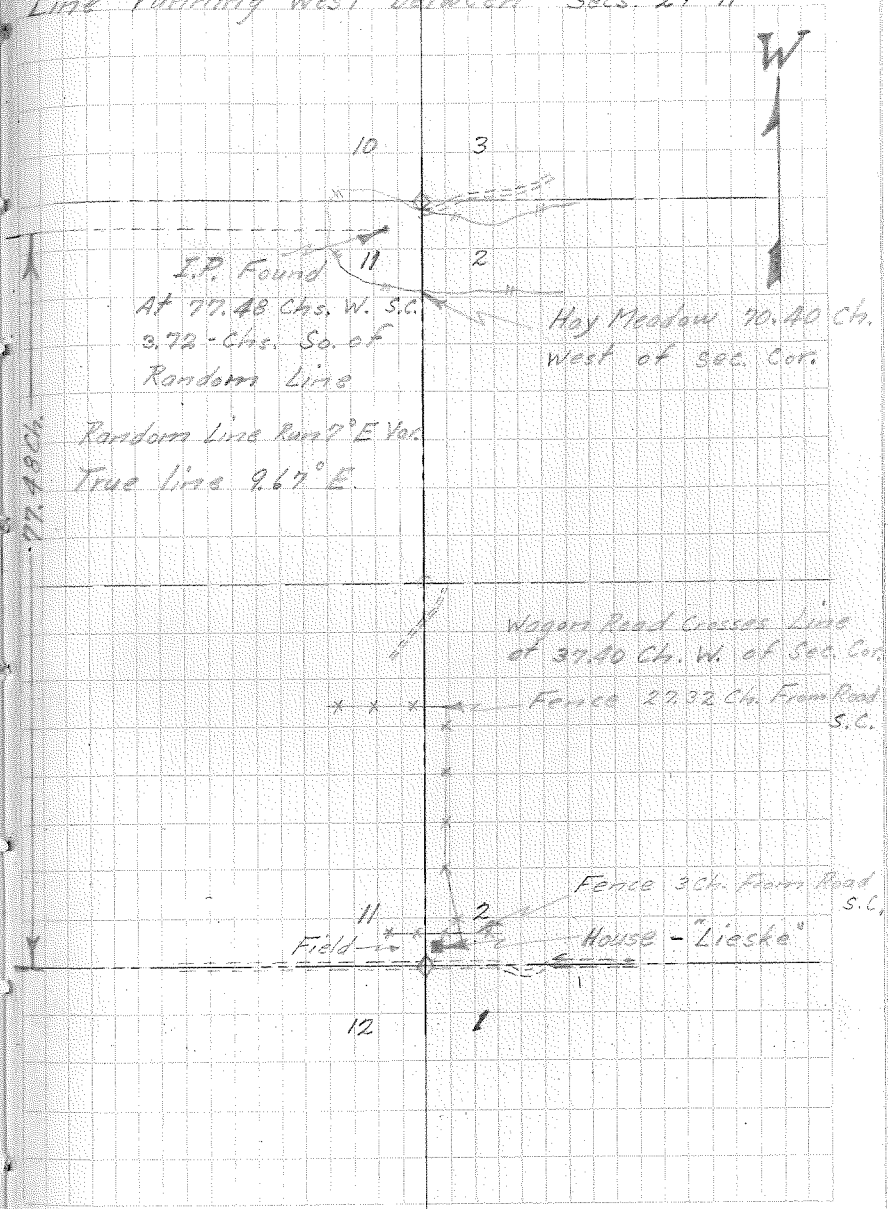 Line running West between Secs. 2 & 11
W
10 3
11 2
I.P. Found
At 77.48 Chs. W. S.C.
3.72 - Chs. So. of
Random Line
Hay Meadow 70.40 Ch.
West of Sec. Cor.
77.48 Ch.
Random Line Run 7° E Var.
True line 9.67° E.
Wagon Road Crosses Line
at 37.40 Ch. W. of Sec. Cor.
Fence 27.32 Ch. From Road
S.C.
Fence 3 Ch. From Road
S.C.
11 2
Field
House - "Lieske"
12 1